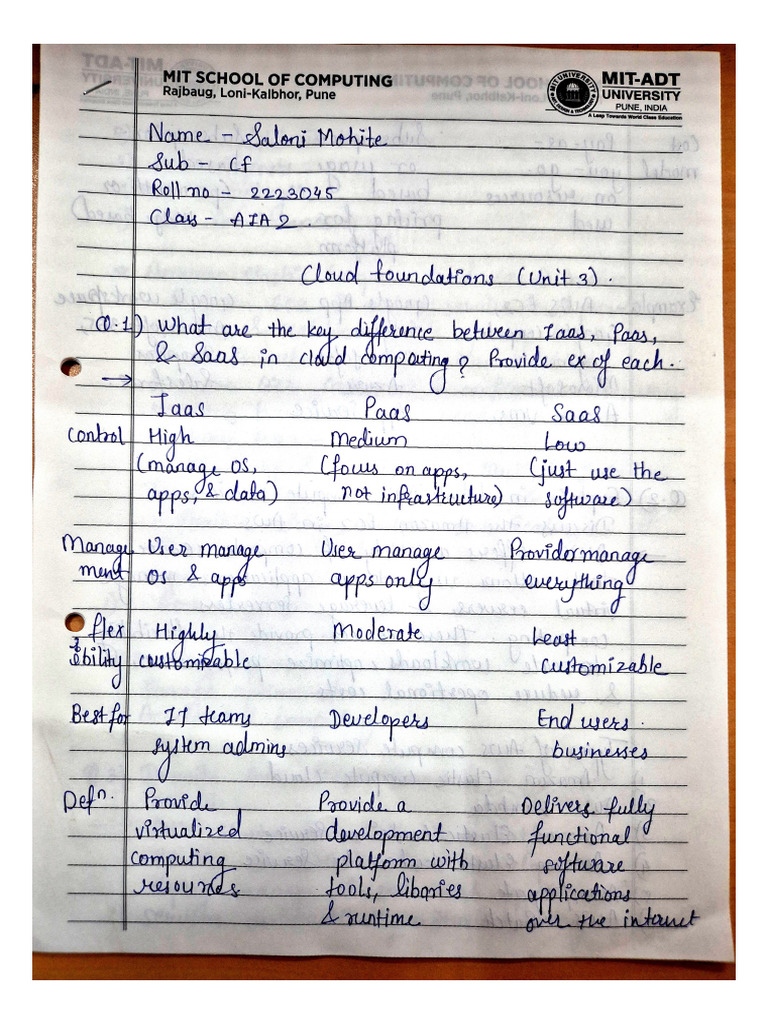 MIT SCHOOL OF COMPUTING
Rajbaug, Loni-Kalbhor, Pune
MIT-ADT
UNIVERSITY
PUNE, INDIA
A Leap Towards World Class Education
Name - Saloni Mohite
Sub - Cf
Roll no - 2223045
Class - AIA 2
Cloud foundations (Unit 3).
Q.1) What are the key difference between Iaas, Paas,
& SaaS in cloud computing? Provide ex of each.
→
Iaas Paas SaaS
Control High Medium Low
(manage OS, (focus on apps, (just use the
apps, & data) not infrastructure) software)
Manage User manage User manage Provider manage
ment OS & apps apps only everything
flex Highly Moderate Least
ibility customizable customizable
Best for IT teams Developers End users.
system admins businesses
Defn. Provide Provide a Delivers fully
virtualized development functional
computing platform with software
resources tools, libaries applications
& runtime over the internet